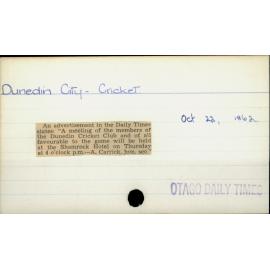 Dunedin City - Cricket
Oct 22, 1862
An advertisement in the Daily Times
states "A meeting of the members of
the Dunedin Cricket Club and of all
favourable to the game will be held
at the Shamrock Hotel on Thursday
at 4 o'clock p.m.—A. Carrick, hon. sec."
OTAGO DAILY TIMES